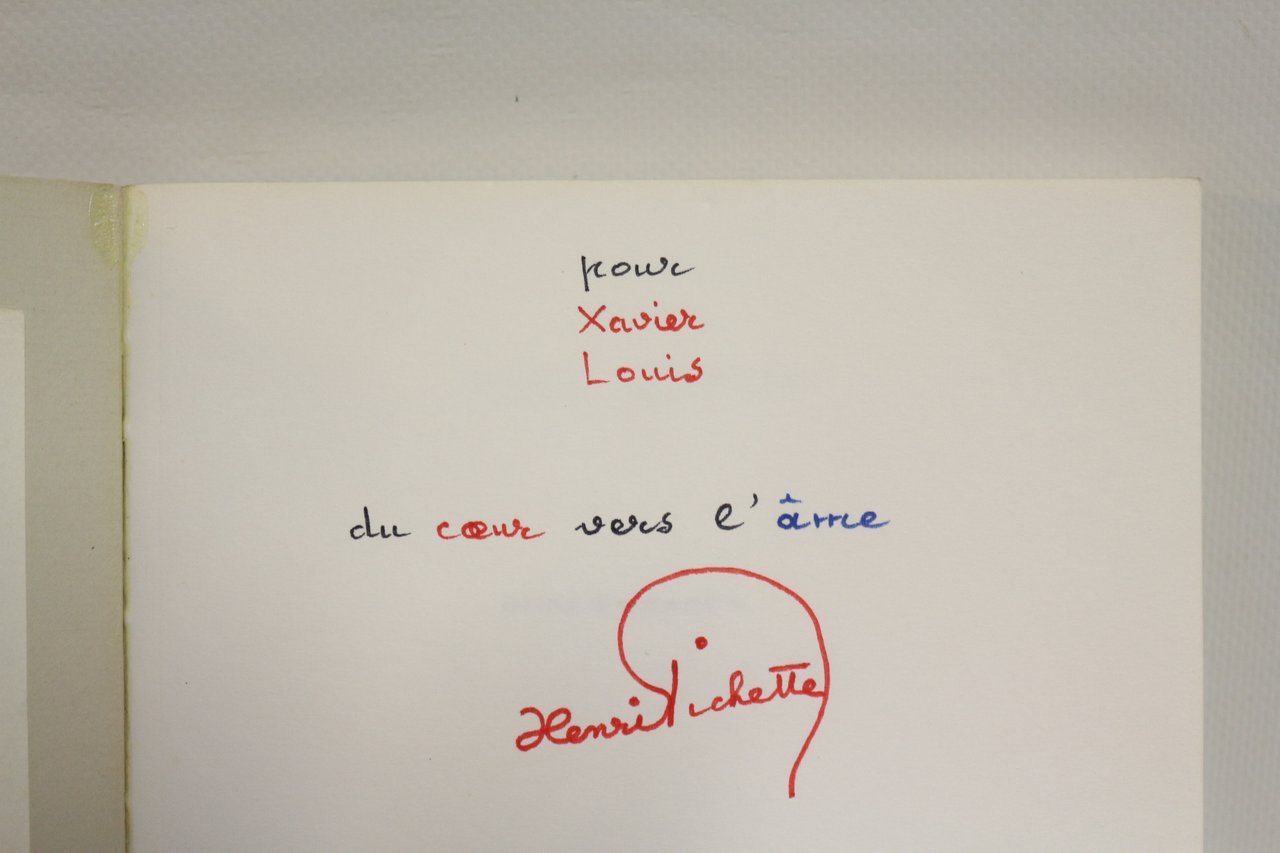 pour
Xavier
Louis
du cœur vers l'âme
Henri Pichette